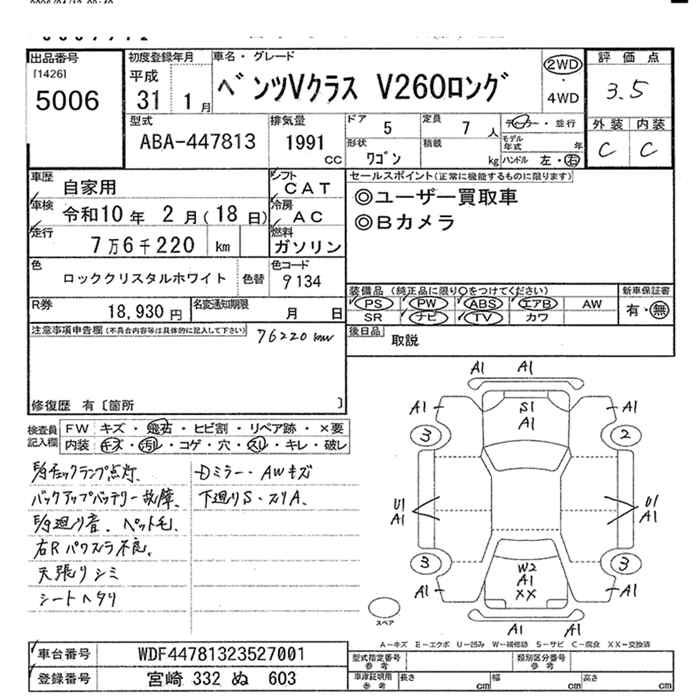 出品番号
[1426]
5006
初度登録年月
平成
31 1月
車名・グレード
ベンツVクラス V260ロング
2WD
・
4WD
評価点
3.5
外装 内装
C C
型式
ABA-447813
排気量
1991
cc
ドア 5
定員 7 人
形状 ワゴン
積載 kg
・並行
モデル年式 年
ハンドル 左・右
車歴 自家用
車検 令和10年 2月(18日)
走行 7万6千220 km
シフト CAT
冷房 AC
燃料 ガソリン
色 ロッククリスタルホワイト
色替
色コード 9134
R券 18,930円
名変通知期限 月 日
セールスポイント(正常に機能するものに限ります)
◎ユーザー買取車
◎Bカメラ
装備品(純正品に限り〇をつけてください)
PS PW ABS エアB AW
SR ナビ TV カワ
新車保証書
有・無
後日品 取説
注意事項申告欄(不具合内容等は具体的に記入して下さい)
76220km
修復歴 有〔箇所 〕
検査員記入欄
FW キズ・飛石・ヒビ割・リペア跡・×要
内装 キズ・汚レ・コゲ・穴・スレ・キレ・破レ
チェックランプ点灯、
バックアップバッテリー故障、
廻り音、ペット毛、
右Rパワスラ不良、
天張りシミ
シートヘタリ
Dミラー・AWキズ
下廻りS・スリA、
A1 A1
A1 S1 A1
A1
3 2
U1 A1
U1 A1
3 3
W2
A1 A1
XX
A1
A1 A1
スペア
A-キズ E-エクボ U-凹み W-補修跡 S-サビ C-腐食 XX-交換済
車台番号 WDF44781323527001
登録番号 宮崎 332 ぬ 603
型式指定番号 参考
類別区分番号 参考
車庫証明用 参考
長さ cm
幅 cm
高さ cm